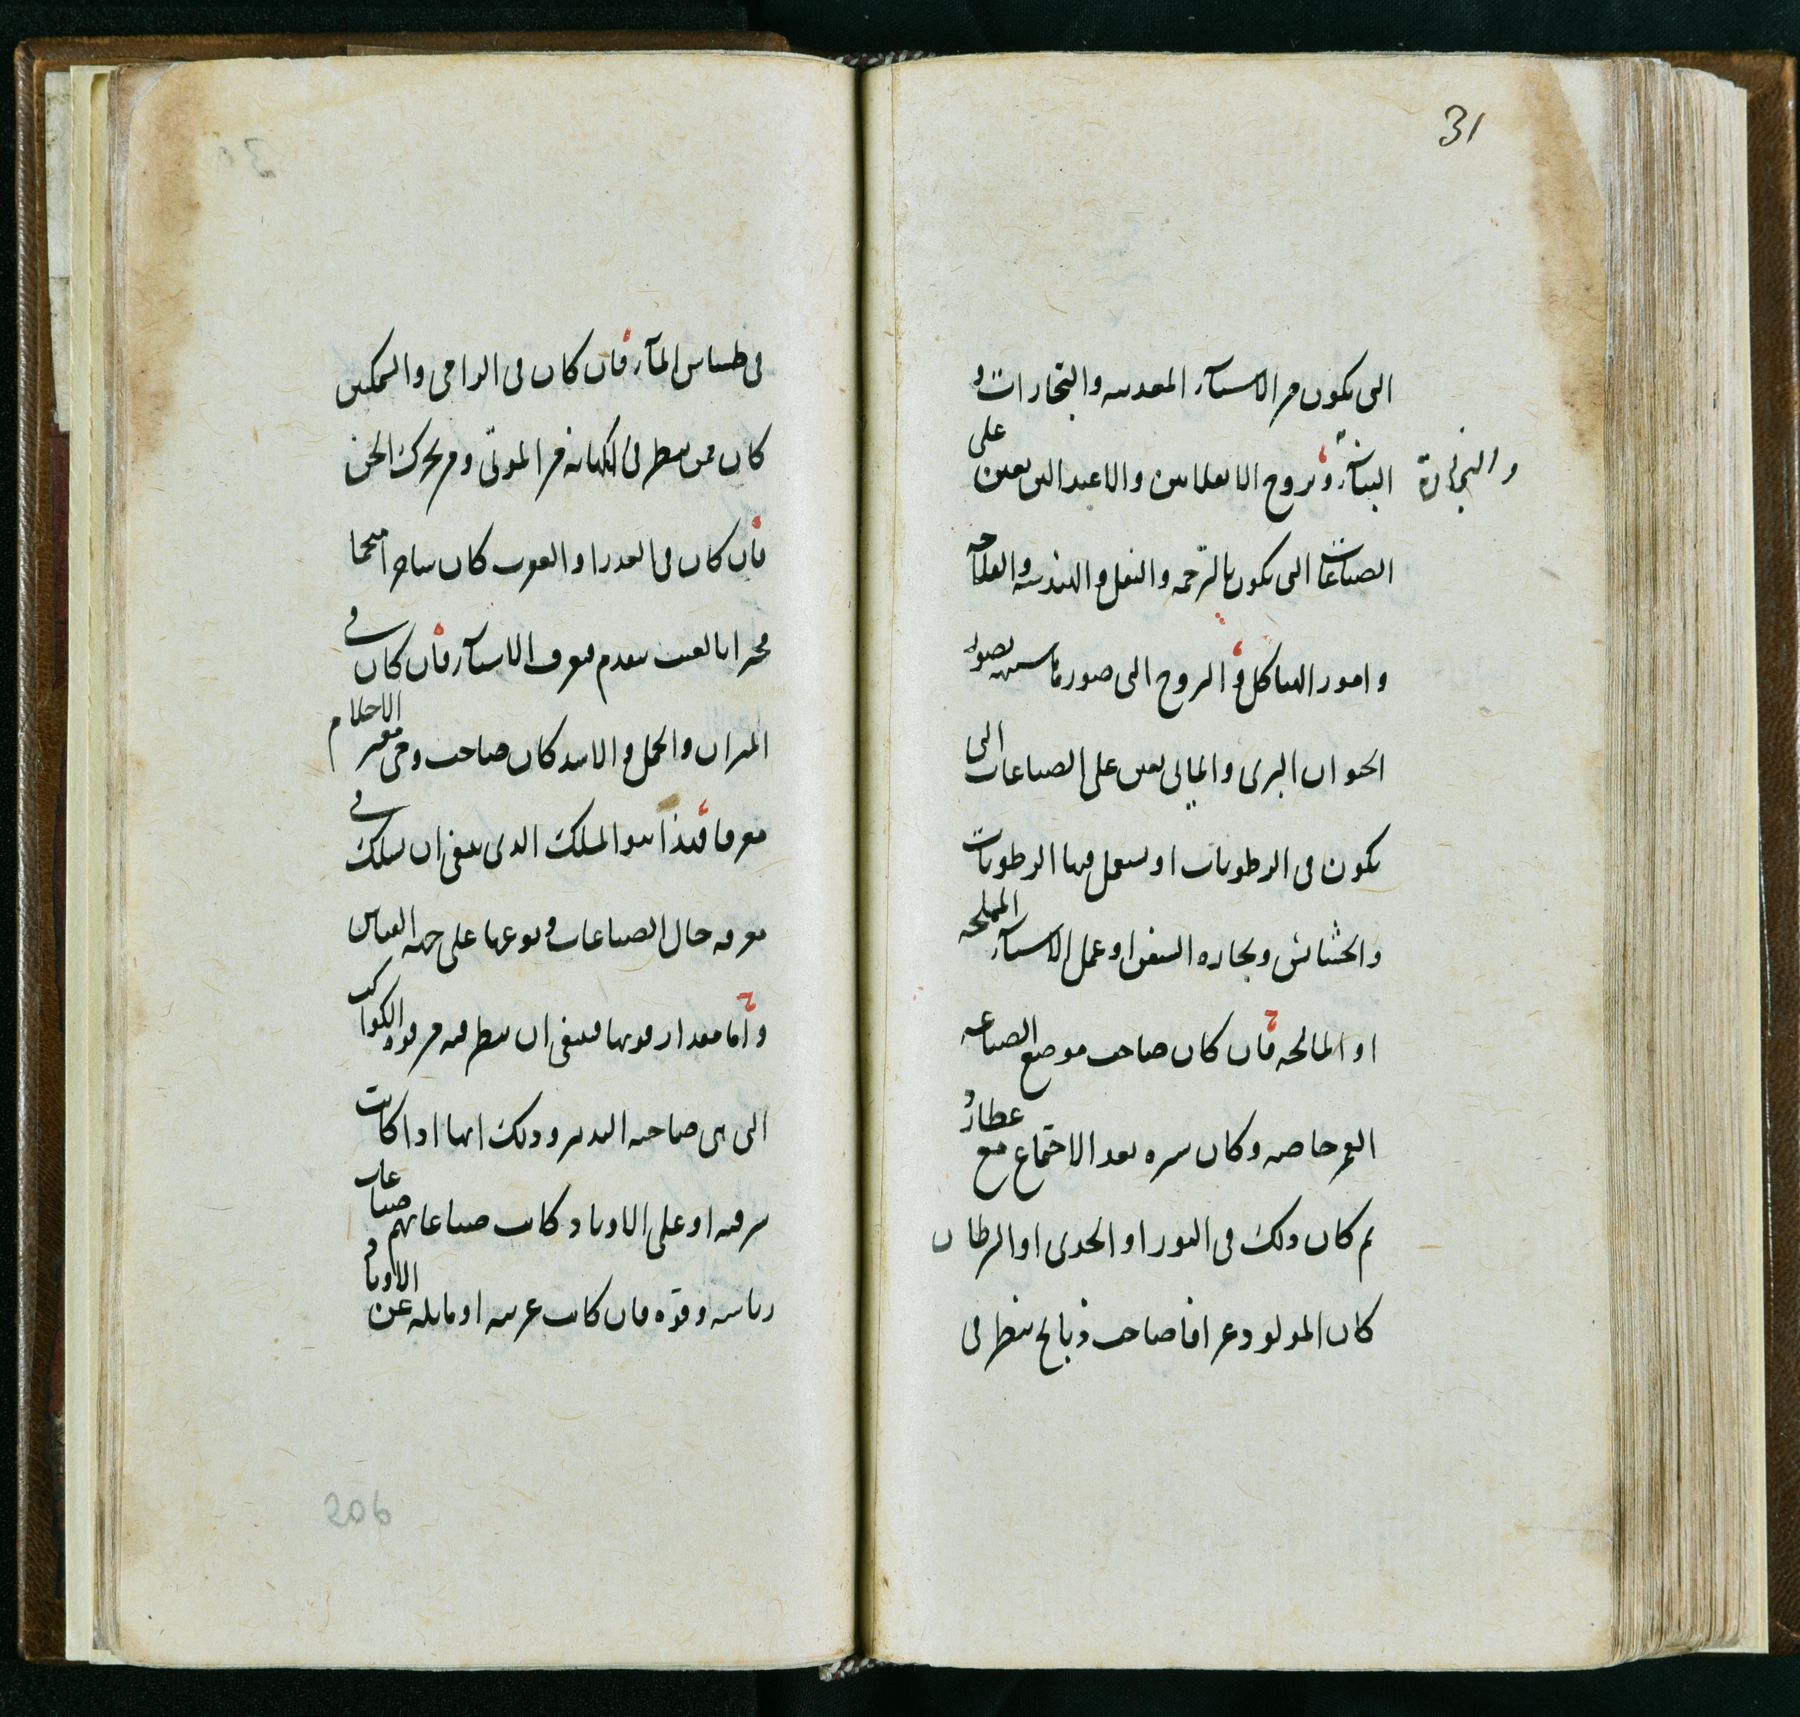 31
التى يكون من الاشياء المعدنيه والتجارات و
البناء وبروج الانقلابين والاعتدالين يعين على
والنجارة
الصناعات التى تكون بالترجمه والنقل والهندسه والفلاحه
وامور الهياكل والبروج التى صورها شبيهه بصور
الحيوان البرى والمائى يعين على الصناعات التى
يكون فى الرطوبات او يستعمل فيها الرطوبات
والحشائش ونجاره السفن او عمل الاشياء المملحه
او المالحه فان كان صاحب موضع الصناعه
القمر خاصه وكان سيره بعد الاجتماع مع عطارد
ثم كان ذلك فى الثور او الجدى او السرطان
كان المولود عرافا صاحب ذبائح ينظر فى
فى طساس الماء فان كان فى الرامى والسمكتين
كان ممن ينظر فى الكهانه من الموتى ومن يحرك الجن
فان كان فى العذرا او العقرب كان ساحرا منجما
مخبرا بالغيب بتقدم فيعرف الاشياء فان كان فى
الميزان والحمل والاسد كان صاحب وحى معبر الاحلام
معرفا فهذا هو المسلك الذى ينبغى ان يسلك فى
معرفه حال الصناعات ونوعها على جهه القياس
واما مقدار قوتها فينبغى ان ينظر فيه من قوه الكواكب
التى هى صاحبه التدبير وذلك انها اذا كانت
شرقيه او على الاوتاد كانت صناعاتهم صناعات
رئاسه وقوه فان كانت غربيه او مائله عن الاوتاد
206